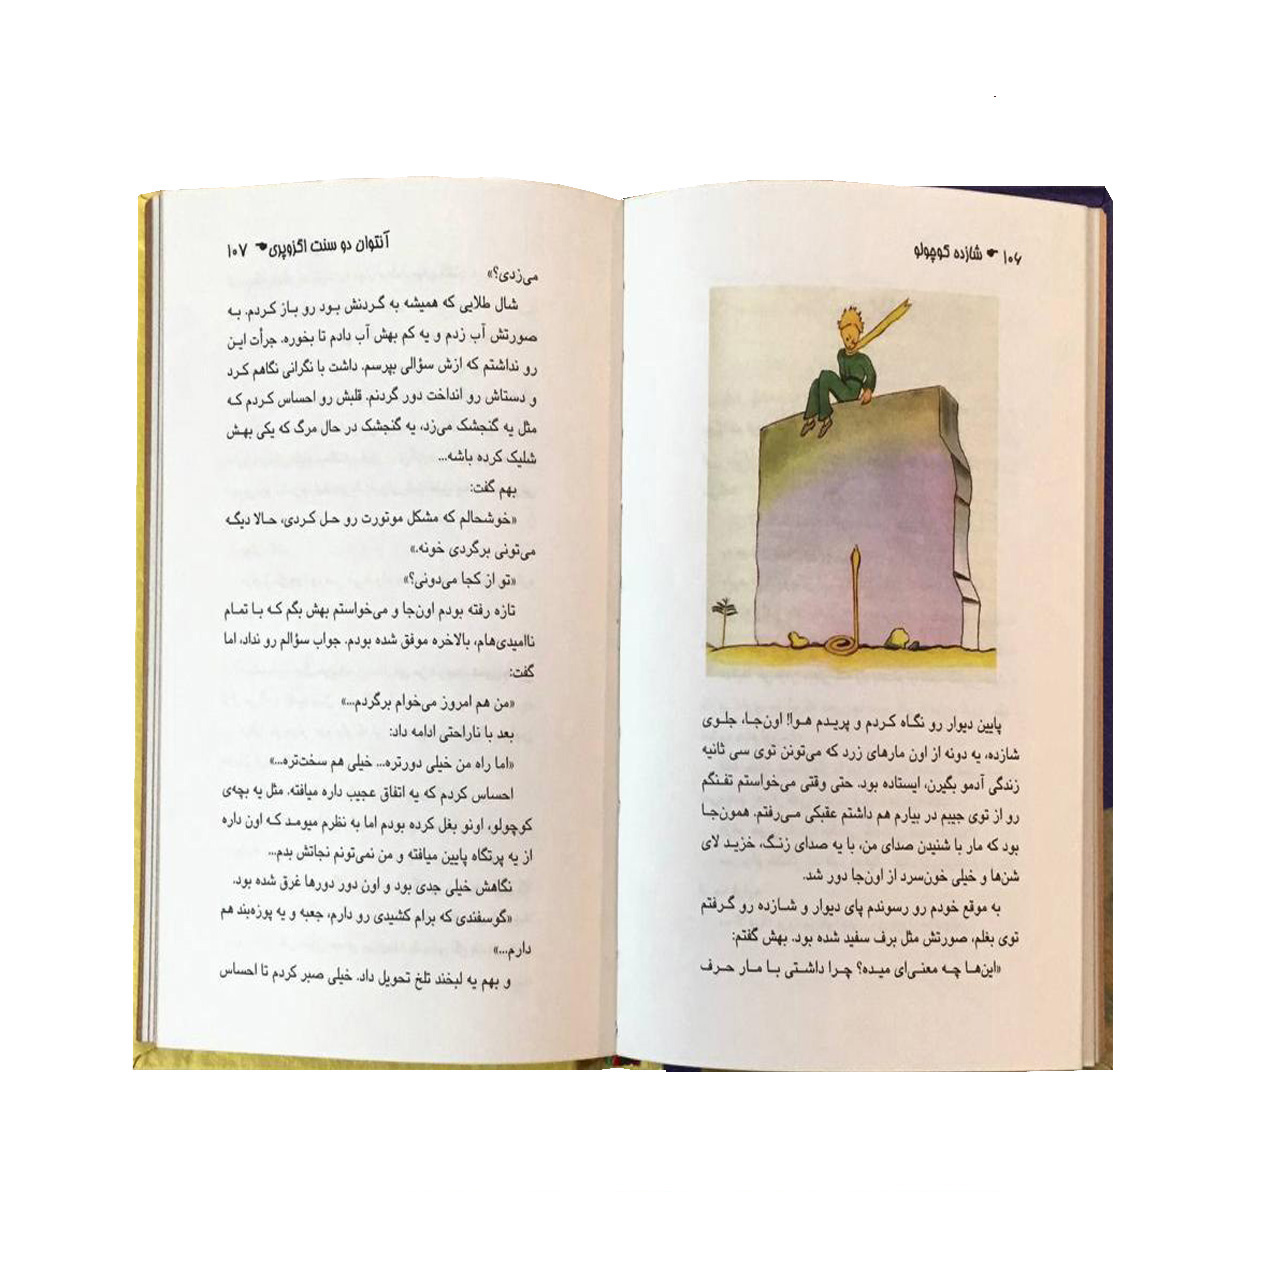 ۱۰۶ شازده کوچولو
پایین دیوار رو نگاه کردم و پریدم هوا! اون‌جا، جلوی
شازده، یه دونه از اون مارهای زرد که می‌تونن توی سی ثانیه
زندگی آدمو بگیرن، ایستاده بود. حتی وقتی می‌خواستم تفنگم
رو از توی جیبم در بیارم هم داشتم عقبکی می‌رفتم. همون‌جا
بود که مار با شنیدن صدای من، با یه صدای زنگ، خزید لای
شن‌ها و خیلی خون‌سرد از اون‌جا دور شد.
به موقع خودم رو رسوندم پای دیوار و شازده رو گرفتم
توی بغلم، صورتش مثل برف سفید شده بود. بهش گفتم:
«این‌ها چه معنی‌ای میده؟ چرا داشتی با مار حرف
آنتوان دو سنت اگزوپری ۱۰۷
می‌زدی؟»
شال طلایی که همیشه به گردنش بود رو باز کردم. به
صورتش آب زدم و یه کم بهش آب دادم تا بخوره. جرأت این
رو نداشتم که ازش سؤالی بپرسم. داشت با نگرانی نگاهم کرد
و دستاش رو انداخت دور گردنم. قلبش رو احساس کردم که
مثل یه گنجشک می‌زد، یه گنجشک در حال مرگ که یکی بهش
شلیک کرده باشه...
بهم گفت:
«خوشحالم که مشکل موتورت رو حل کردی، حالا دیگه
می‌تونی برگردی خونه.»
«تو از کجا می‌دونی؟»
تازه رفته بودم اون‌جا و می‌خواستم بهش بگم که با تمام
ناامیدی‌هام، بالاخره موفق شده بودم. جواب سؤالم رو نداد، اما
گفت:
«من هم امروز می‌خوام برگردم...»
بعد با ناراحتی ادامه داد:
«اما راه من خیلی دورتره... خیلی هم سخت‌تره...»
احساس کردم که یه اتفاق عجیب داره میافته. مثل یه بچه‌ی
کوچولو، اونو بغل کرده بودم اما به نظرم میومد که اون داره
از یه پرتگاه پایین میافته و من نمی‌تونم نجاتش بدم...
نگاهش خیلی جدی بود و اون دور دورها غرق شده بود.
«گوسفندی که برام کشیدی رو دارم، جعبه و یه پوزه‌بند هم
دارم...»
و بهم یه لبخند تلخ تحویل داد. خیلی صبر کردم تا احساس